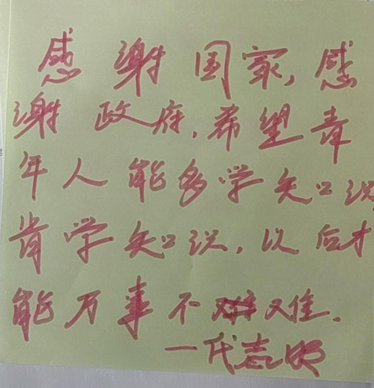 感谢国家,感
谢政府,希望青
年人能多学知识
肯学知识,以后才
能万事不难
一代志